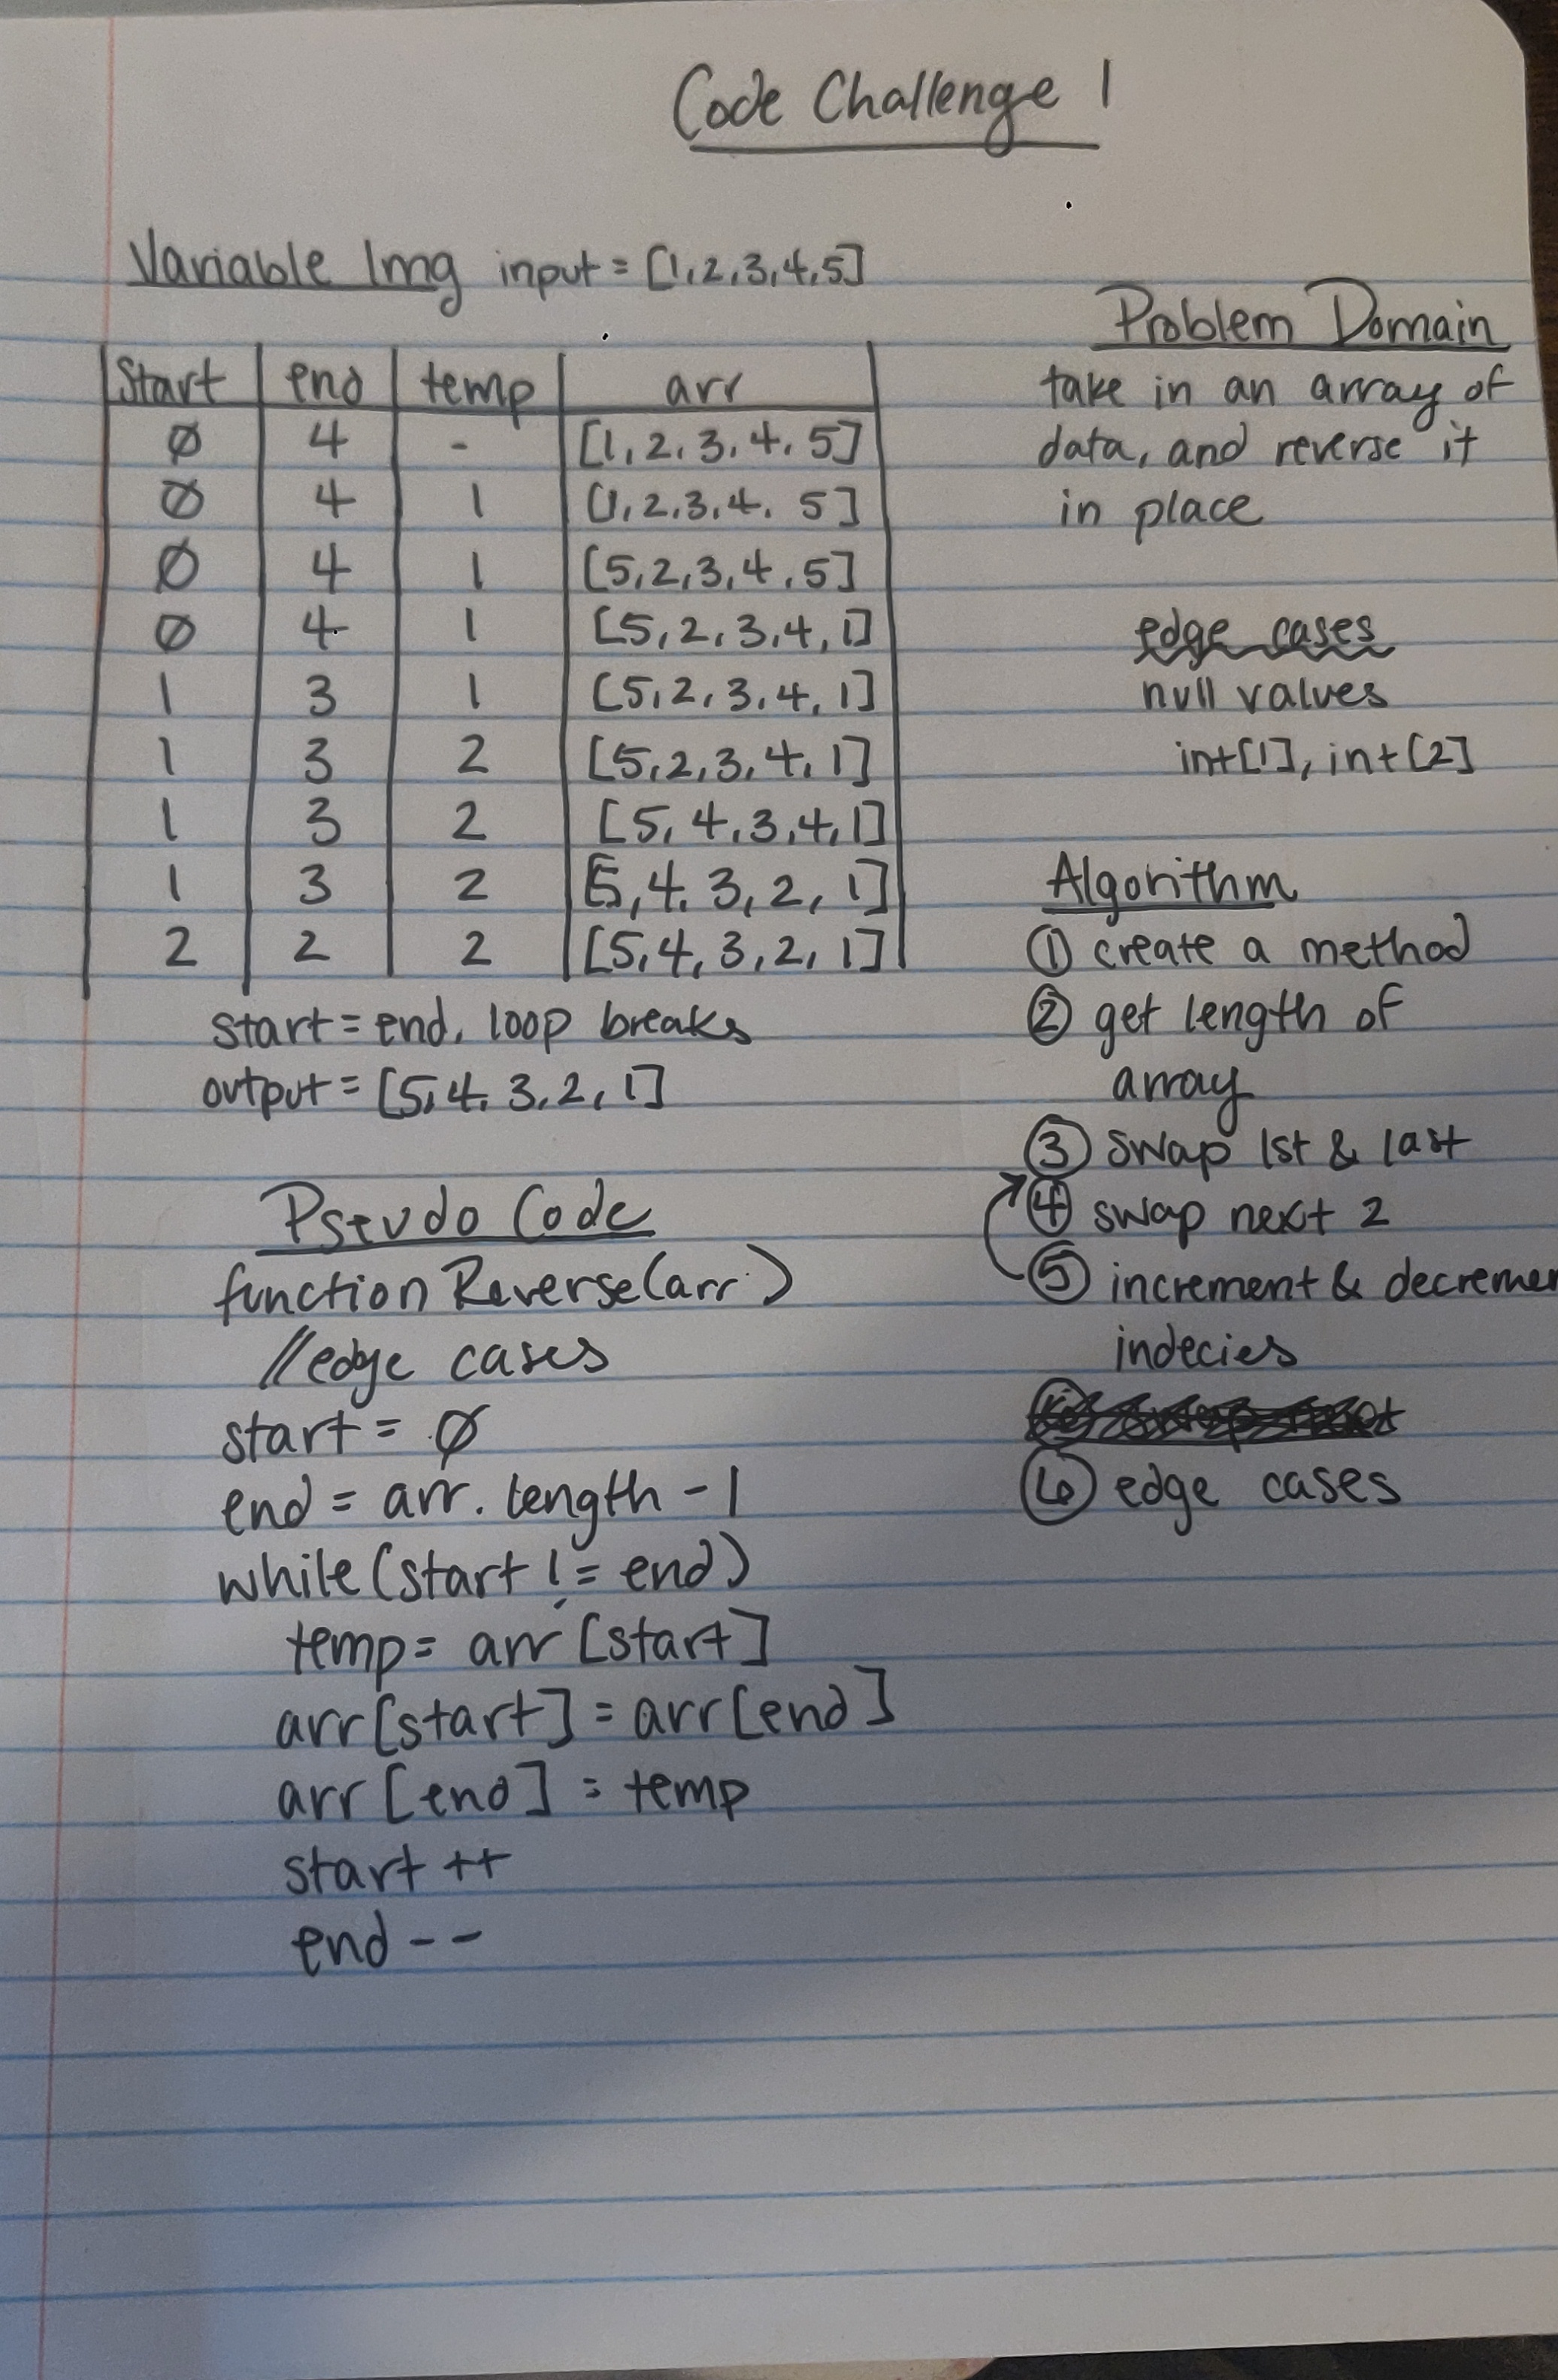 Code Challenge 1
Variable Img input = [1,2,3,4,5]
Start end temp arr
Ø 4 - [1,2,3,4,5]
Ø 4 1 [1,2,3,4,5]
Ø 4 1 [5,2,3,4,5]
Ø 4 1 [5,2,3,4,1]
1 3 1 [5,2,3,4,1]
1 3 2 [5,2,3,4,1]
1 3 2 [5,4,3,4,1]
1 3 2 [5,4,3,2,1]
2 2 2 [5,4,3,2,1]
start = end, loop breaks
output = [5,4,3,2,1]
Pseudo Code
function Reverse(arr)
//edge cases
start = Ø
end = arr.length - 1
while(start != end)
temp = arr[start]
arr[start] = arr[end]
arr[end] = temp
start ++
end --
Problem Domain
take in an array of
data, and reverse it
in place
edge cases
null values
int[1], int[2]
Algorithm
① create a method
② get length of
array
③ swap 1st & last
④ swap next 2
⑤ increment & decremen
indecies
⑥ edge cases